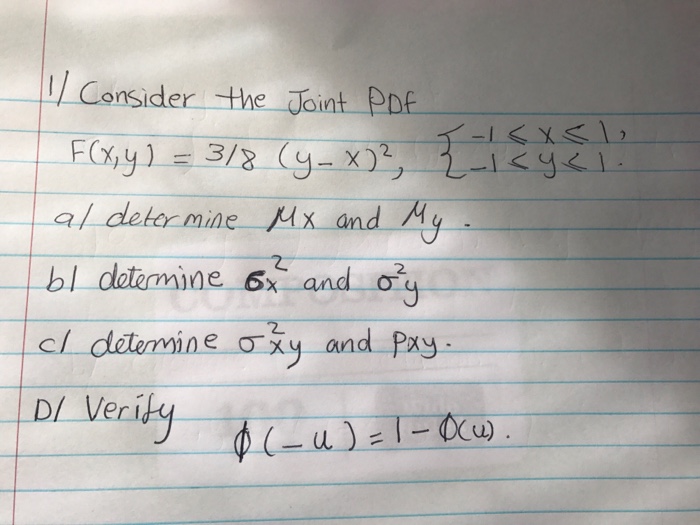 1/ Consider the Joint PDf
F(x,y) = 3/8 (y-x)², { -1 < x ≤ 1,
-1 < y < 1.
a/ determine Mx and My.
b/ determine σx² and σ²y
c/ determine σ²xy and Pxy.
D/ Verify
ϕ(-u) = 1 - ϕ(u).